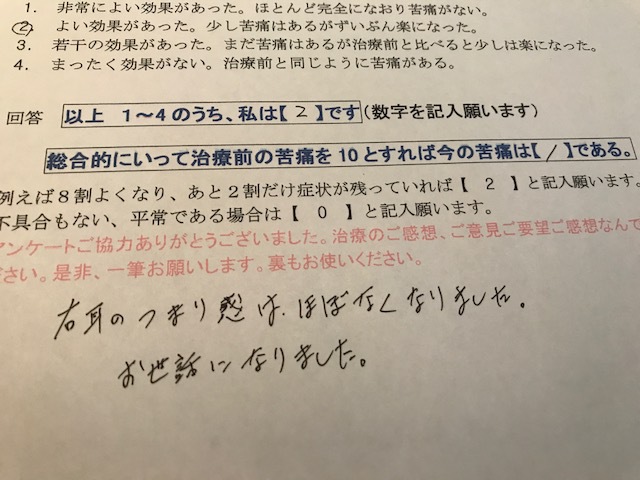 1. 非常によい効果があった。ほとんど完全になおり苦痛がない。
2. よい効果があった。少し苦痛はあるがずいぶん楽になった。
3. 若干の効果があった。まだ苦痛はあるが治療前と比べると少しは楽になった。
4. まったく効果がない。治療前と同じように苦痛がある。
回答 以上 1～4のうち、私は【 2 】です(数字を記入願います)
総合的にいって治療前の苦痛を10とすれば今の苦痛は【 1 】である。
例えば8割よくなり、あと2割だけ症状が残っていれば【 2 】と記入願います。
不具合もない、平常である場合は【 0 】と記入願います。
アンケートご協力ありがとうございました。治療のご感想、ご意見ご要望ご感想なんで
ださい。是非、一筆お願いします。裏もお使いください。
右耳のつまり感は、ほぼなくなりました。
お世話になりました。